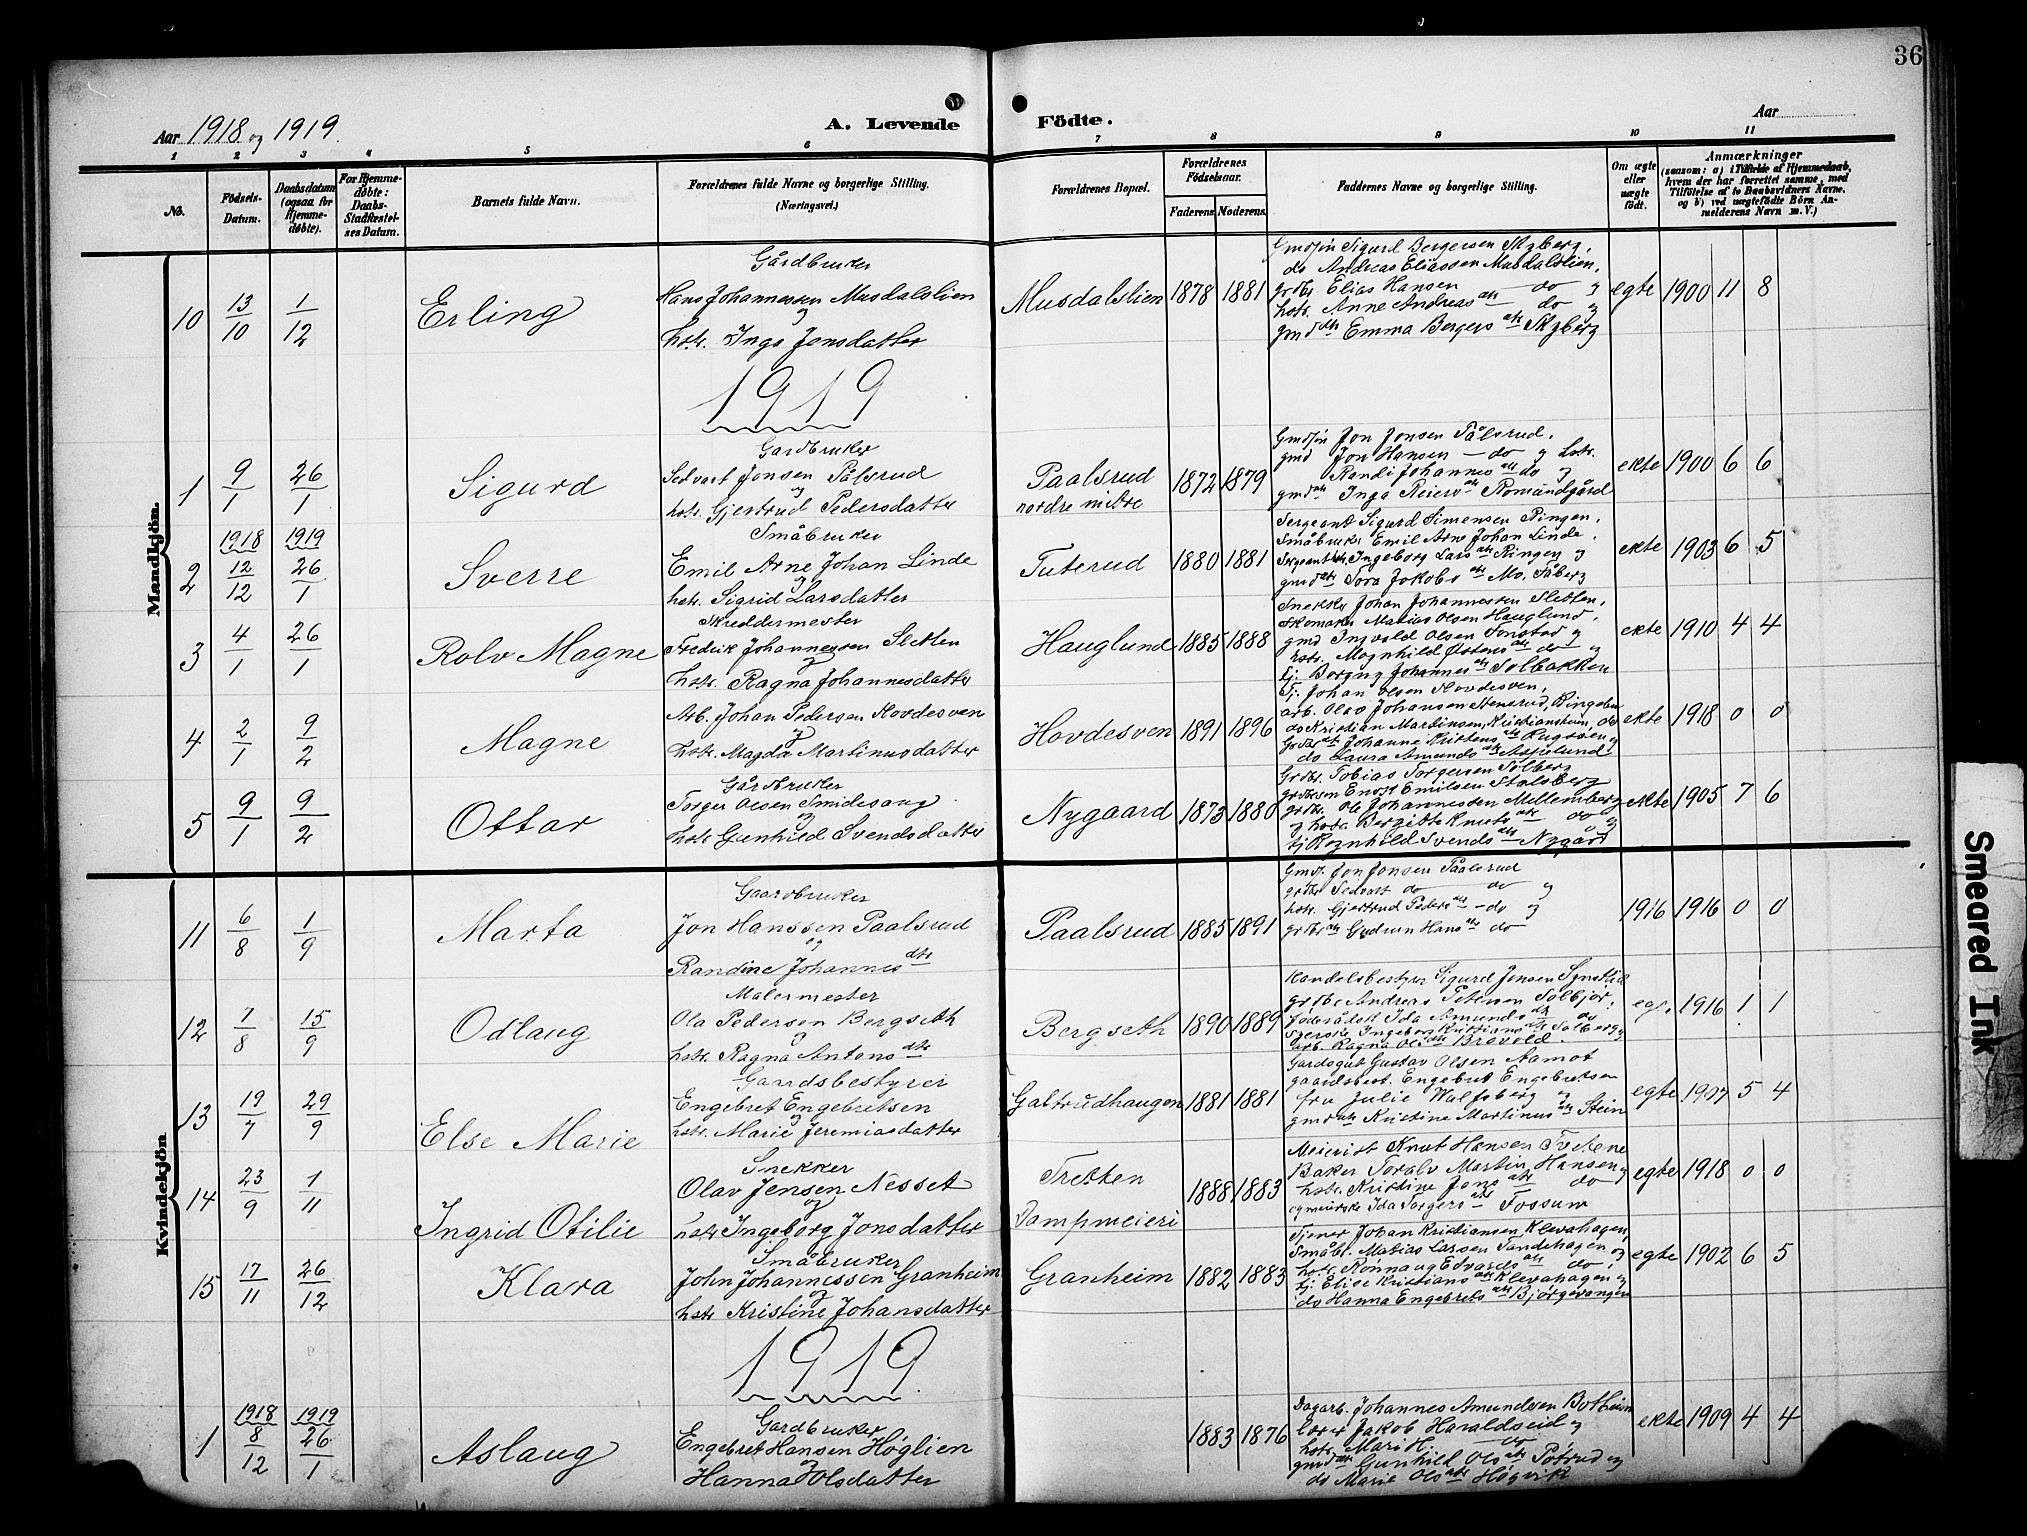 36
Aar 1918 og 1919.
A. Levende Födte.
Aar
1 2 3 4 5 6 7 8 9 10 11
No.
Födsels-Datum.
Daabsdatum (ogsaa for Hjemme-døbte).
For Hjemme-døbte: Daabs-Stadfæstel-ses Datum.
Barnets fulde Navn.
Forældrenes fulde Navne og borgerlige Stilling.
(Næringsvei.)
Forældrenes Bopæl.
Forældrenes Födselsaar.
Faderens. Moderens.
Faddernes Navne og borgerlige Stilling.
Om ægte eller uægte født.
Anmærkninger
(saasom: a) i Tilfælde af Hjemmedaab,
hvem der har forrettet samme, med
Tilföielse af to Daabsvidners Navne.
og b) ved uægtefödte Börn An-
melderens Navn m. V.)
Mandkjön.
10 13/10 1/12 Erling
Gårdbruker
Hans Johannessen Musdalslien
og
hstr. Inga Jensdatter
Musdalslien 1878 1881
Gmdsjn Sigurd Bergersen Skyberg,
do Andreas Eliassen Musdalslien,
grdbr. Elias Hansen — do — og
hstr. Anne Andreas dtr — do — og
gmddtr Emma Bergers dtr Skyberg
egte 1900 11 8
1919
1 9/1 26/1 Sigurd
Gardbruker
Sedvart Jonsen Pålsrud
og
hstr. Gjertrud Pedersdatter
Paalsrud
nordre midtre
1872 1879
Gmdsjn Jon Jonsen Pålsrud,
gmd Jon Hansen — do — og hstr.
Randi Johannes dtr do og
gmddtr Inga Reiers dtr Romundgård
ekte 1900 6 6
2 1918 12/12 1919 26/1 Sverre
Småbruker
Emil Arne Johan Linde
og
hstr. Sigrid Larsdatter
Tuterud 1880 1881
Sergeant Sigurd Simensen Ringen,
Småbruker Emil Arne Johan Linde,
Sergeanthstr. Ingeborg Lars dtr Ringen og
gmddtr Tora Jakobs dtr Mo, Fåberg
ekte 1903 6 5
3 4/1 26/1 Rolv Magne
Skreddermester
Fredrik Johannessen Sletten
og
hstr. Ragna Johannesdatter
Hauglund 1885 1888
Snekker Johan Johannessen Sletten,
Skomaker Matias Olsen Hauglund,
gmd Ingvald Olsen Fonstad og
hstr. Magnhild Østens dtr do og
tj. Borgny Johannes dtr Solbakken
ekte 1910 4 4
4 2/1 9/2 Magne
Arb. Johan Pedersen Hovdesven
og
hstr. Magda Martinusdatter
Hovdesven 1891 1896
Tj. Johan Olsen Hovdesven,
arb. Olav Johansen Stenerud, Ringebu
do Kristian Martinsen, Kristiansheim, do
Johanne Kristens dtr
do Laura Amunds dtr Askelund
ekte 1918 0 0
5 9/1 9/2 Ottar
Gårdbruker
Torger Olsen Smidesaug
og
hstr Gunhild Svendsdatter
Nygaard 1873 1880
Grdbr. Tobias Torgersen Solberg
grdbrsøn Enost Emilsen Stalsberg
grdbr. Ole Johannessen Mellemberg
og hstr. Bergitte Knuts dtr — do — og
tj Ragnhild Svends dtr — Nygård
ekte 1905 7 6
Kvindekjön
11 6/8 1/9 Marta
Gaardbruker
Jon Hanssen Paalsrud
og
Randine Johannes dtr
Paalsrud 1885 1891
Gmd. Jon Jonsen Paalsrud
grdbr Sedvart do — do — og
hstr. Gjertrud Peders dtr — do og
grdbr dtr Gudrun Hans dtr do
1916 1916 0 0
12 7/8 15/9 Odlaug
Malermester
Ola Pedersen Bergseth
og
hstr. Ragna Antons dtr
Bergseth 1890 1889
Handelsbestyrer Sigurd Jensen
grdbr Andreas Petersen Solbjør,
Ida Amunds dtr do
Ingeborg Kristians dtr Solberg og
arb. Ragna Ols dtr Brevold.
egt. 1916 1 1
13 19/7 29/9 Else Marie
Gaardsbestyrer
Engebret Engebretsen
og
hstr. Marie Jeremiasdatter
Galtrudhaugen 1881 1881
Gardsgut Gustav Olsen Aamot
gaardsbest. Engebret Engebretsen
fru Julie Walfsberg og
gmddtr Kristine Martinus dtr Stein
egte 1907 5 4
14 23/9 1/11 Ingrid Otilie
Snekker
Olav Jensen Nesset
og
hstr Ingeborg Jonsdatter
Tretten
Dampmeieri
1888 1883
Meierist Knut Hansen Tvetene
Baker Toralv Martin Hansen og
hstr. Kristine Jons dtr do
og meierske Ida Torgers dtr — Fossum
egte 1918 0 0
15 17/11 26/12 Klara
Småbruker
John Johannessen Granheim
og
hstr Kristine Johansdatter
Granheim 1882 1883
Tjener Johan Kristiansen Klevahagen,
Småbr. Matias Larsen Sandehagen og
hstr. Rønnaug Edvards dtr do,
tj Elise Kristians dtr Klevahagen og
do Hanna Engebrets dtr Bjørgevangen
egte 1902 6 5
1919
1 1918 8/12 1919 26/1 Aslaug
Gardbruker
Engebret Hansen Høglien
og
Hanna Olsdatter
1883 1876
Dagarb. Johannes Amundsen Botheim
lærer Jakob Haraldseid og
hstr. Mari H. — do
gmddtr Gunhild Ols dtr Potrud og
do Marie Ols dtr Høgvik
ekte 1909 4 4
Smeared Ink